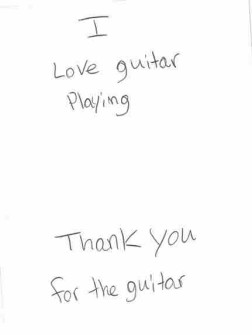 I
Love guitar
Playing
Thank you
for the guitar